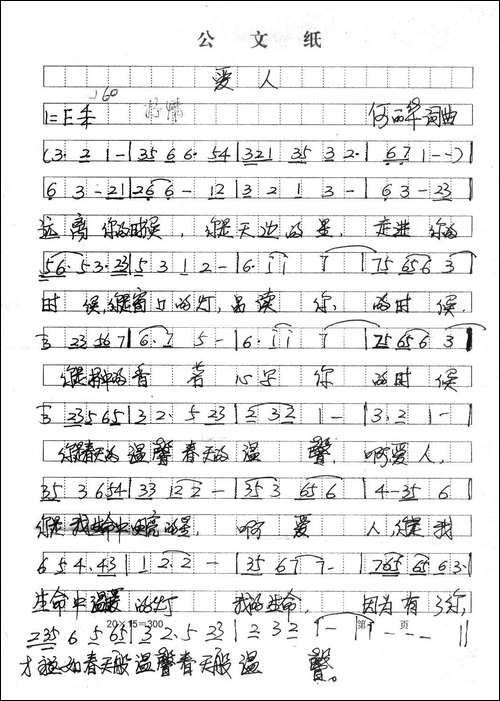 公 文 纸
爱人
♩60
1=E 4/4 何 词曲
(3· 2 1 - | 35 6 6· 54 | 321 35 3 2· | 6 7 1 - - )
6 3 - 21 | 26 6 - 12 | 3 2 1 3 - | 6 3 - 23
远离你的时候,你是天边的星,走进你的
56· 5 3· 23 | 5 3 1 2 - | 6· 1 1 7 | 75 65 6 3 |
时候,你是窗口的灯,品读你,的时候,
3 23 56 7 | 6· 7 5 - | 6· 1 1 7 | 75 65 6 3 |
你是 中的香 若心字你的时候
3 23 5 65 | 3 2· 5 23 | 2 3 2 1 - | 3· 2 1 - |
你是春天的温馨春天的温馨,啊爱人,
35 3 654 | 33 12 2 - | 35 3 65 6 | 4 - 35 6
你是我生命中 的星,啊爱人,你是我
6 5 4· 43 | 1 2· 2 - | 35 6 7 7 - | 765 65 6 3· |
生命中温暖的灯 我的生命,因为有了你,
20×15=300 第 页
2 35 6 5 65 | 3 2· 5 23 | 2 3 2 1 - | 1 - - - ||
才 如春天般温馨春天般温馨。